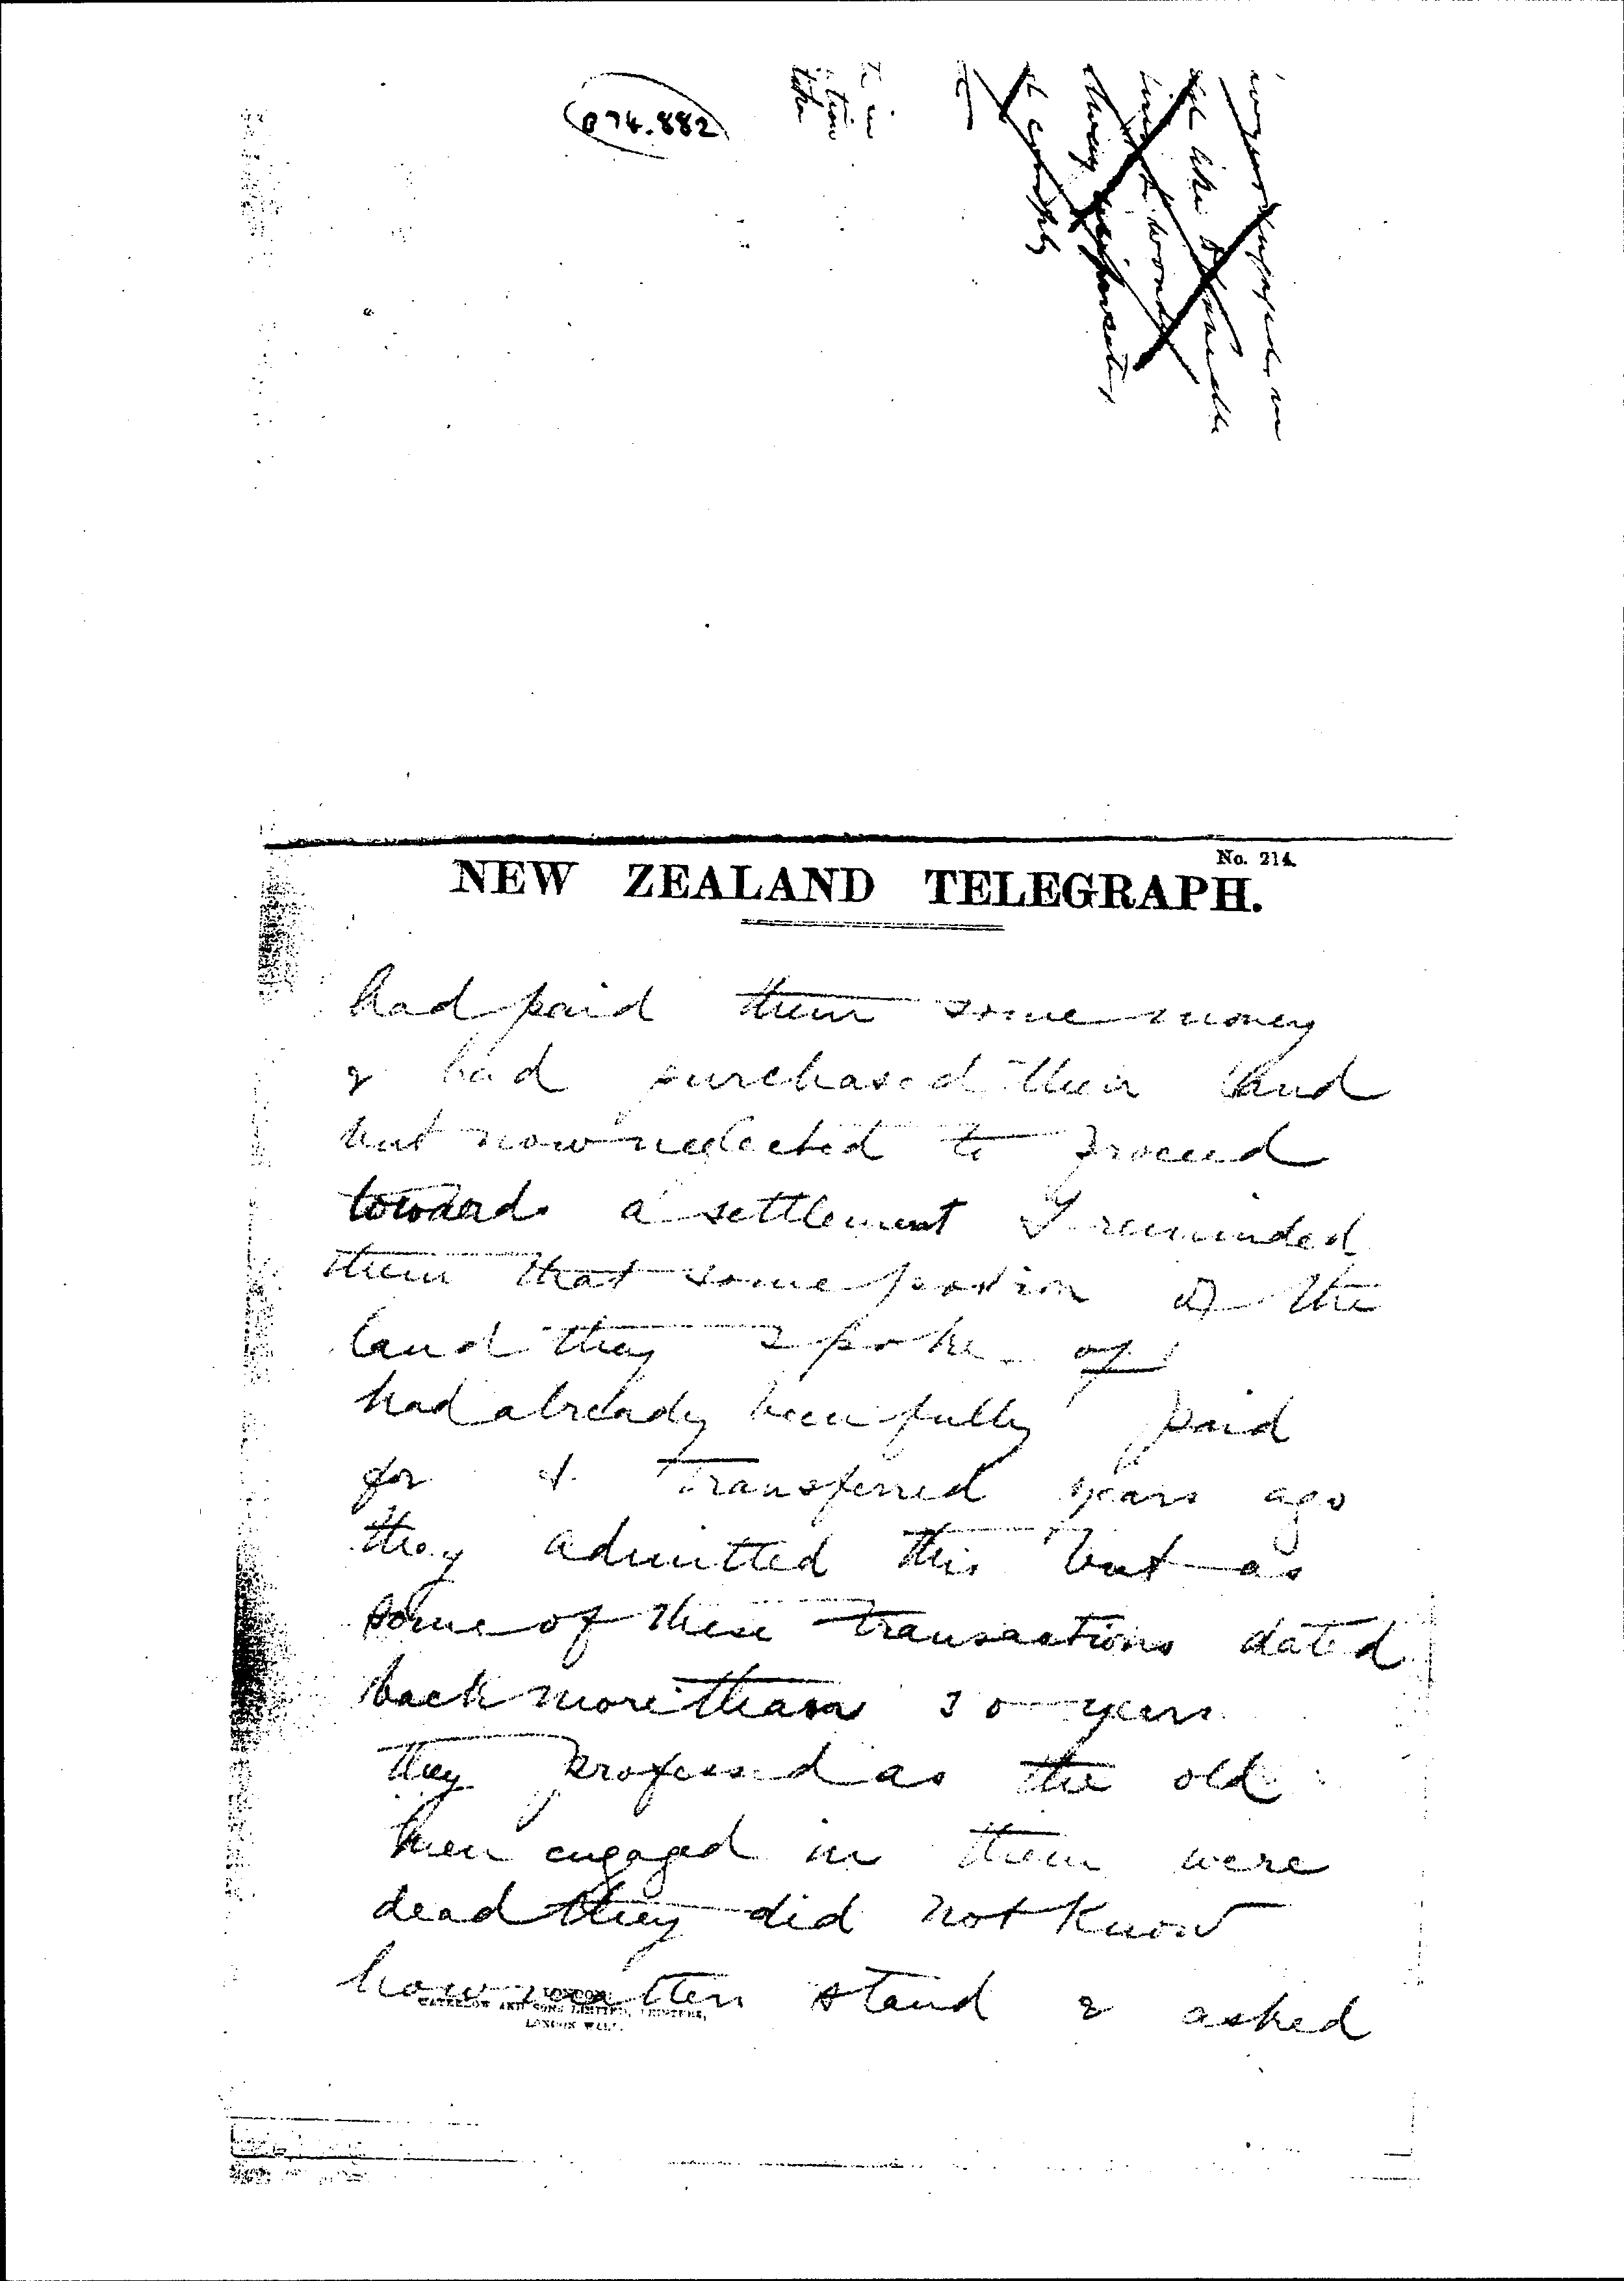 074.882
No. 214.
NEW ZEALAND TELEGRAPH.
had paid them some money
& had purchased their land
but now neglected to proceed
towards a settlement I reminded
them that some portion of the
land they spoke of
had already been fully paid
for & transferred years ago
they admitted this but as
some of these transactions dated
back more than 30 years
they professed as the old
men engaged in them were
dead they did not know
how matters stand & asked
LONDON
WATERLOW AND SONS LIMITED, PRINTERS,
LONDON WALL.